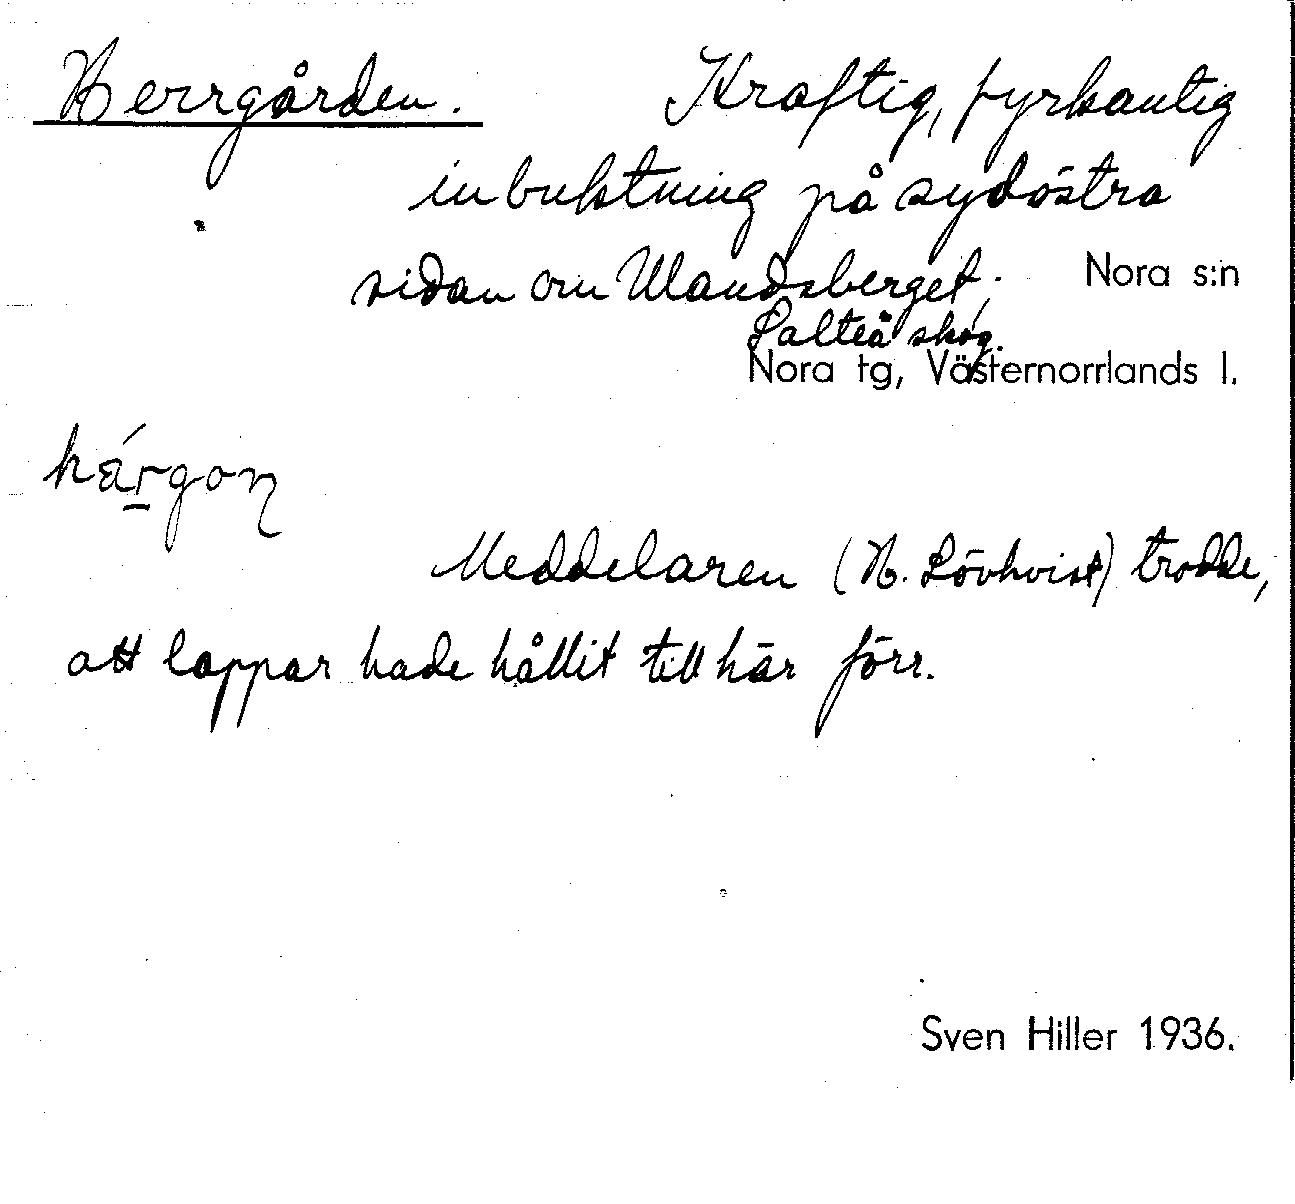 Herrgården. Kraftig, fyrkantig
inbuktning på sydöstra
sidan om Ulandsberget; Nora s:n
Salteå skog.
Nora tg, Västernorrlands l.
hárgoɳ
Meddelaren (N. Lövkvist) trodde,
att lappar hade hållit till här förr.
Sven Hiller 1936.